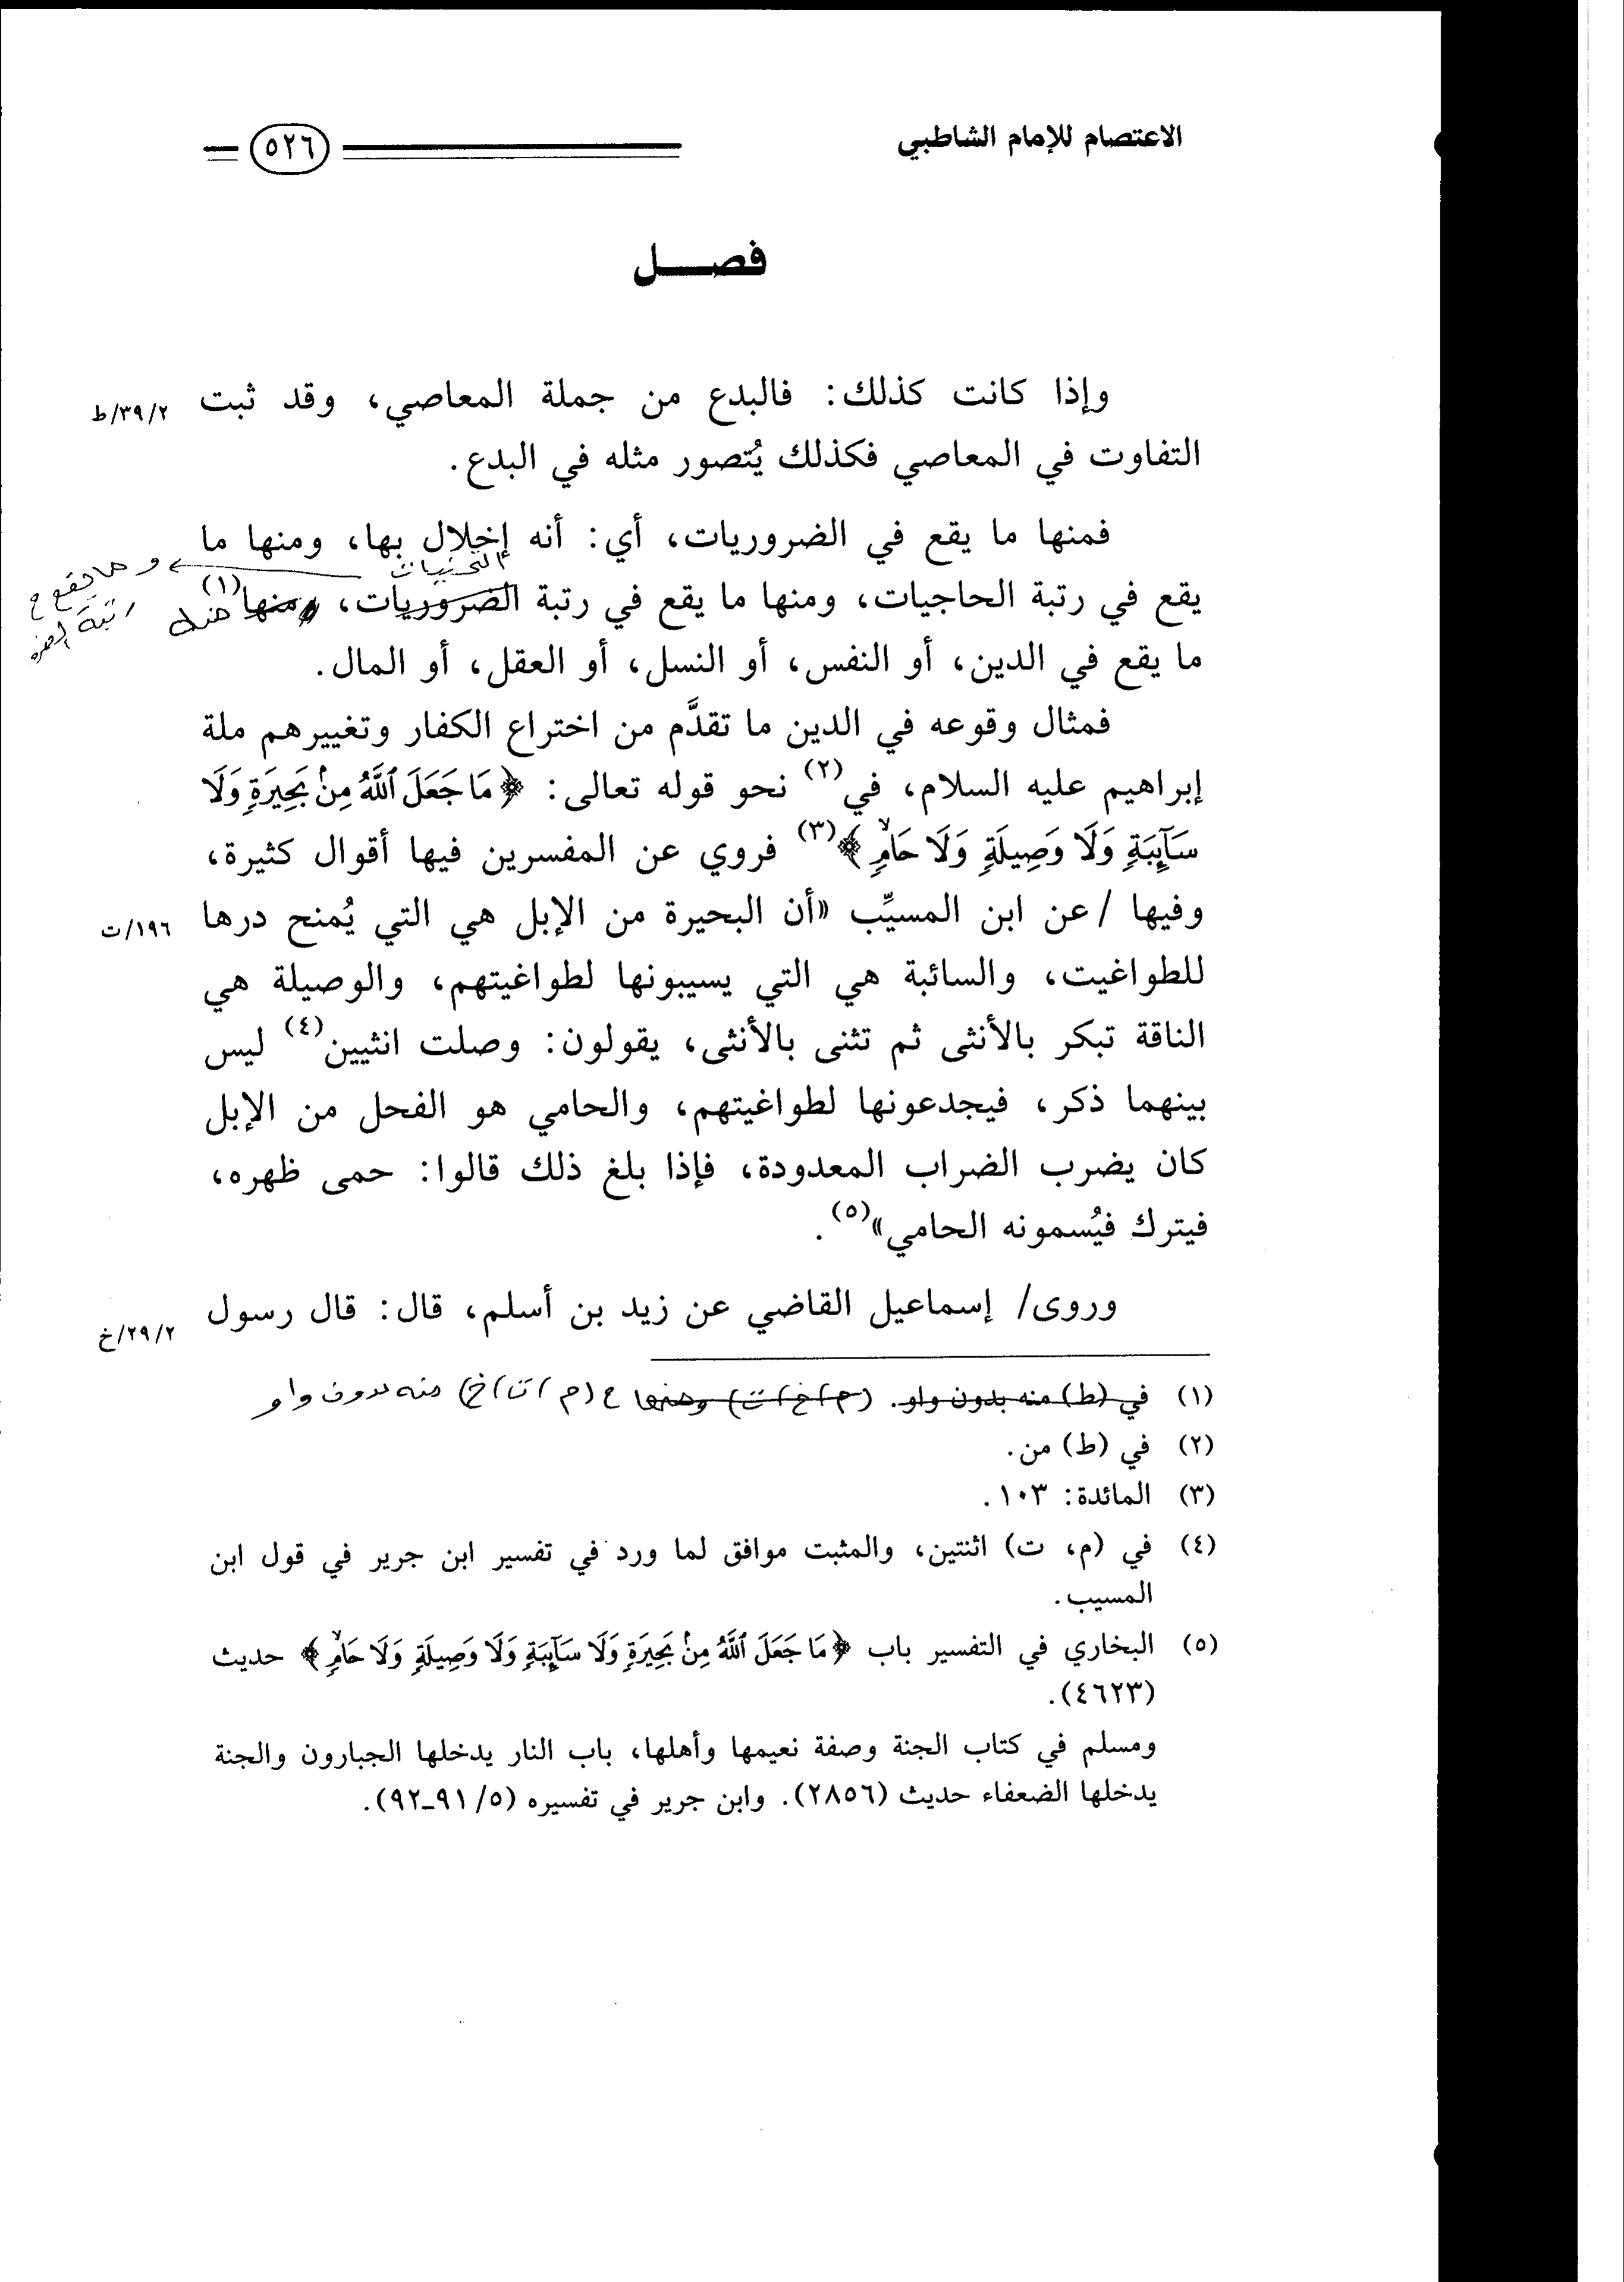 الاعتصام للإمام الشاطبي
٥٢٦
فصـــــل
وإذا كانت كذلك: فالبدع من جملة المعاصي، وقد ثبت
٢/٣٩/ط
التفاوت في المعاصي فكذلك يُتصور مثله في البدع.
فمنها ما يقع في الضروريات، أي: أنه إخلال بها، ومنها ما
التحسينيات
وما يقع في
يقع في رتبة الحاجيات، ومنها ما يقع في رتبة الضروريات، ومنها(١) منه
رتبة
ما يقع في الدين، أو النفس، أو النسل، أو العقل، أو المال.
فمثال وقوعه في الدين ما تقدَّم من اختراع الكفار وتغييرهم ملة
إبراهيم عليه السلام، في(٢) نحو قوله تعالى: ﴿مَا جَعَلَ ٱللَّهُ مِنۢ بَحِيرَةٖ وَلَا
سَآئِبَةٖ وَلَا وَصِيلَةٖ وَلَا حَامٖۙ﴾(٣) فروي عن المفسرين فيها أقوال كثيرة،
وفيها / عن ابن المسيِّب «أن البحيرة من الإبل هي التي يُمنح درها
١٩٦/ت
للطواغيت، والسائبة هي التي يسيبونها لطواغيتهم، والوصيلة هي
الناقة تبكر بالأنثى ثم تثنى بالأنثى، يقولون: وصلت انثيين(٤) ليس
بينهما ذكر، فيجدعونها لطواغيتهم، والحامي هو الفحل من الإبل
كان يضرب الضراب المعدودة، فإذا بلغ ذلك قالوا: حمى ظهره،
فيترك فيُسمونه الحامي»(٥).
وروى/ إسماعيل القاضي عن زيد بن أسلم، قال: قال رسول
٢/٢٩/خ
(١) في (ط) منه بدون واو. (م، خ، ت) ومنها في (م، ت، خ) منه بدون واو
(٢) في (ط) من.
(٣) المائدة: ١٠٣.
(٤) في (م، ت) اثنتين، والمثبت موافق لما ورد في تفسير ابن جرير في قول ابن
المسيب.
(٥) البخاري في التفسير باب ﴿مَا جَعَلَ ٱللَّهُ مِنۢ بَحِيرَةٖ وَلَا سَآئِبَةٖ وَلَا وَصِيلَةٖ وَلَا حَامٖۙ﴾ حديث
(٤٦٢٣).
ومسلم في كتاب الجنة وصفة نعيمها وأهلها، باب النار يدخلها الجبارون والجنة
يدخلها الضعفاء حديث (٢٨٥٦). وابن جرير في تفسيره (٥/ ٩١-٩٢).